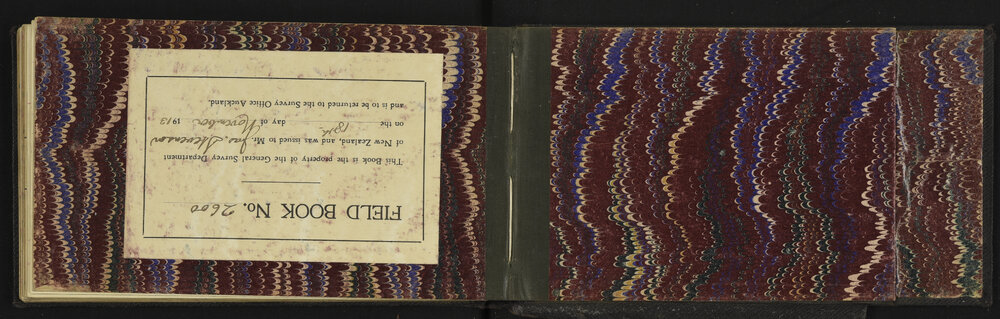 FIELD BOOK No. 2600
This Book is the property of the General Survey Department
of New Zealand, and was issued to Mr. Jas. Stevenson
on the 18th day of November 1913
and is to be returned to the Survey Office Auckland.